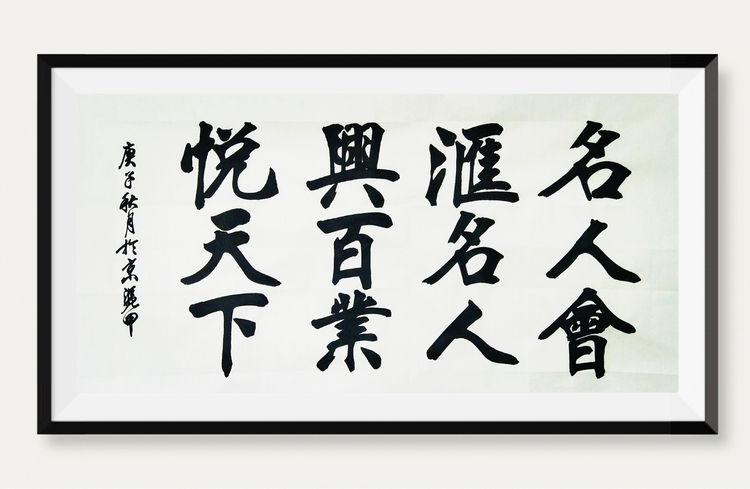 名人會
滙名人
興百業
悅天下
庚子秋月於京龍甲